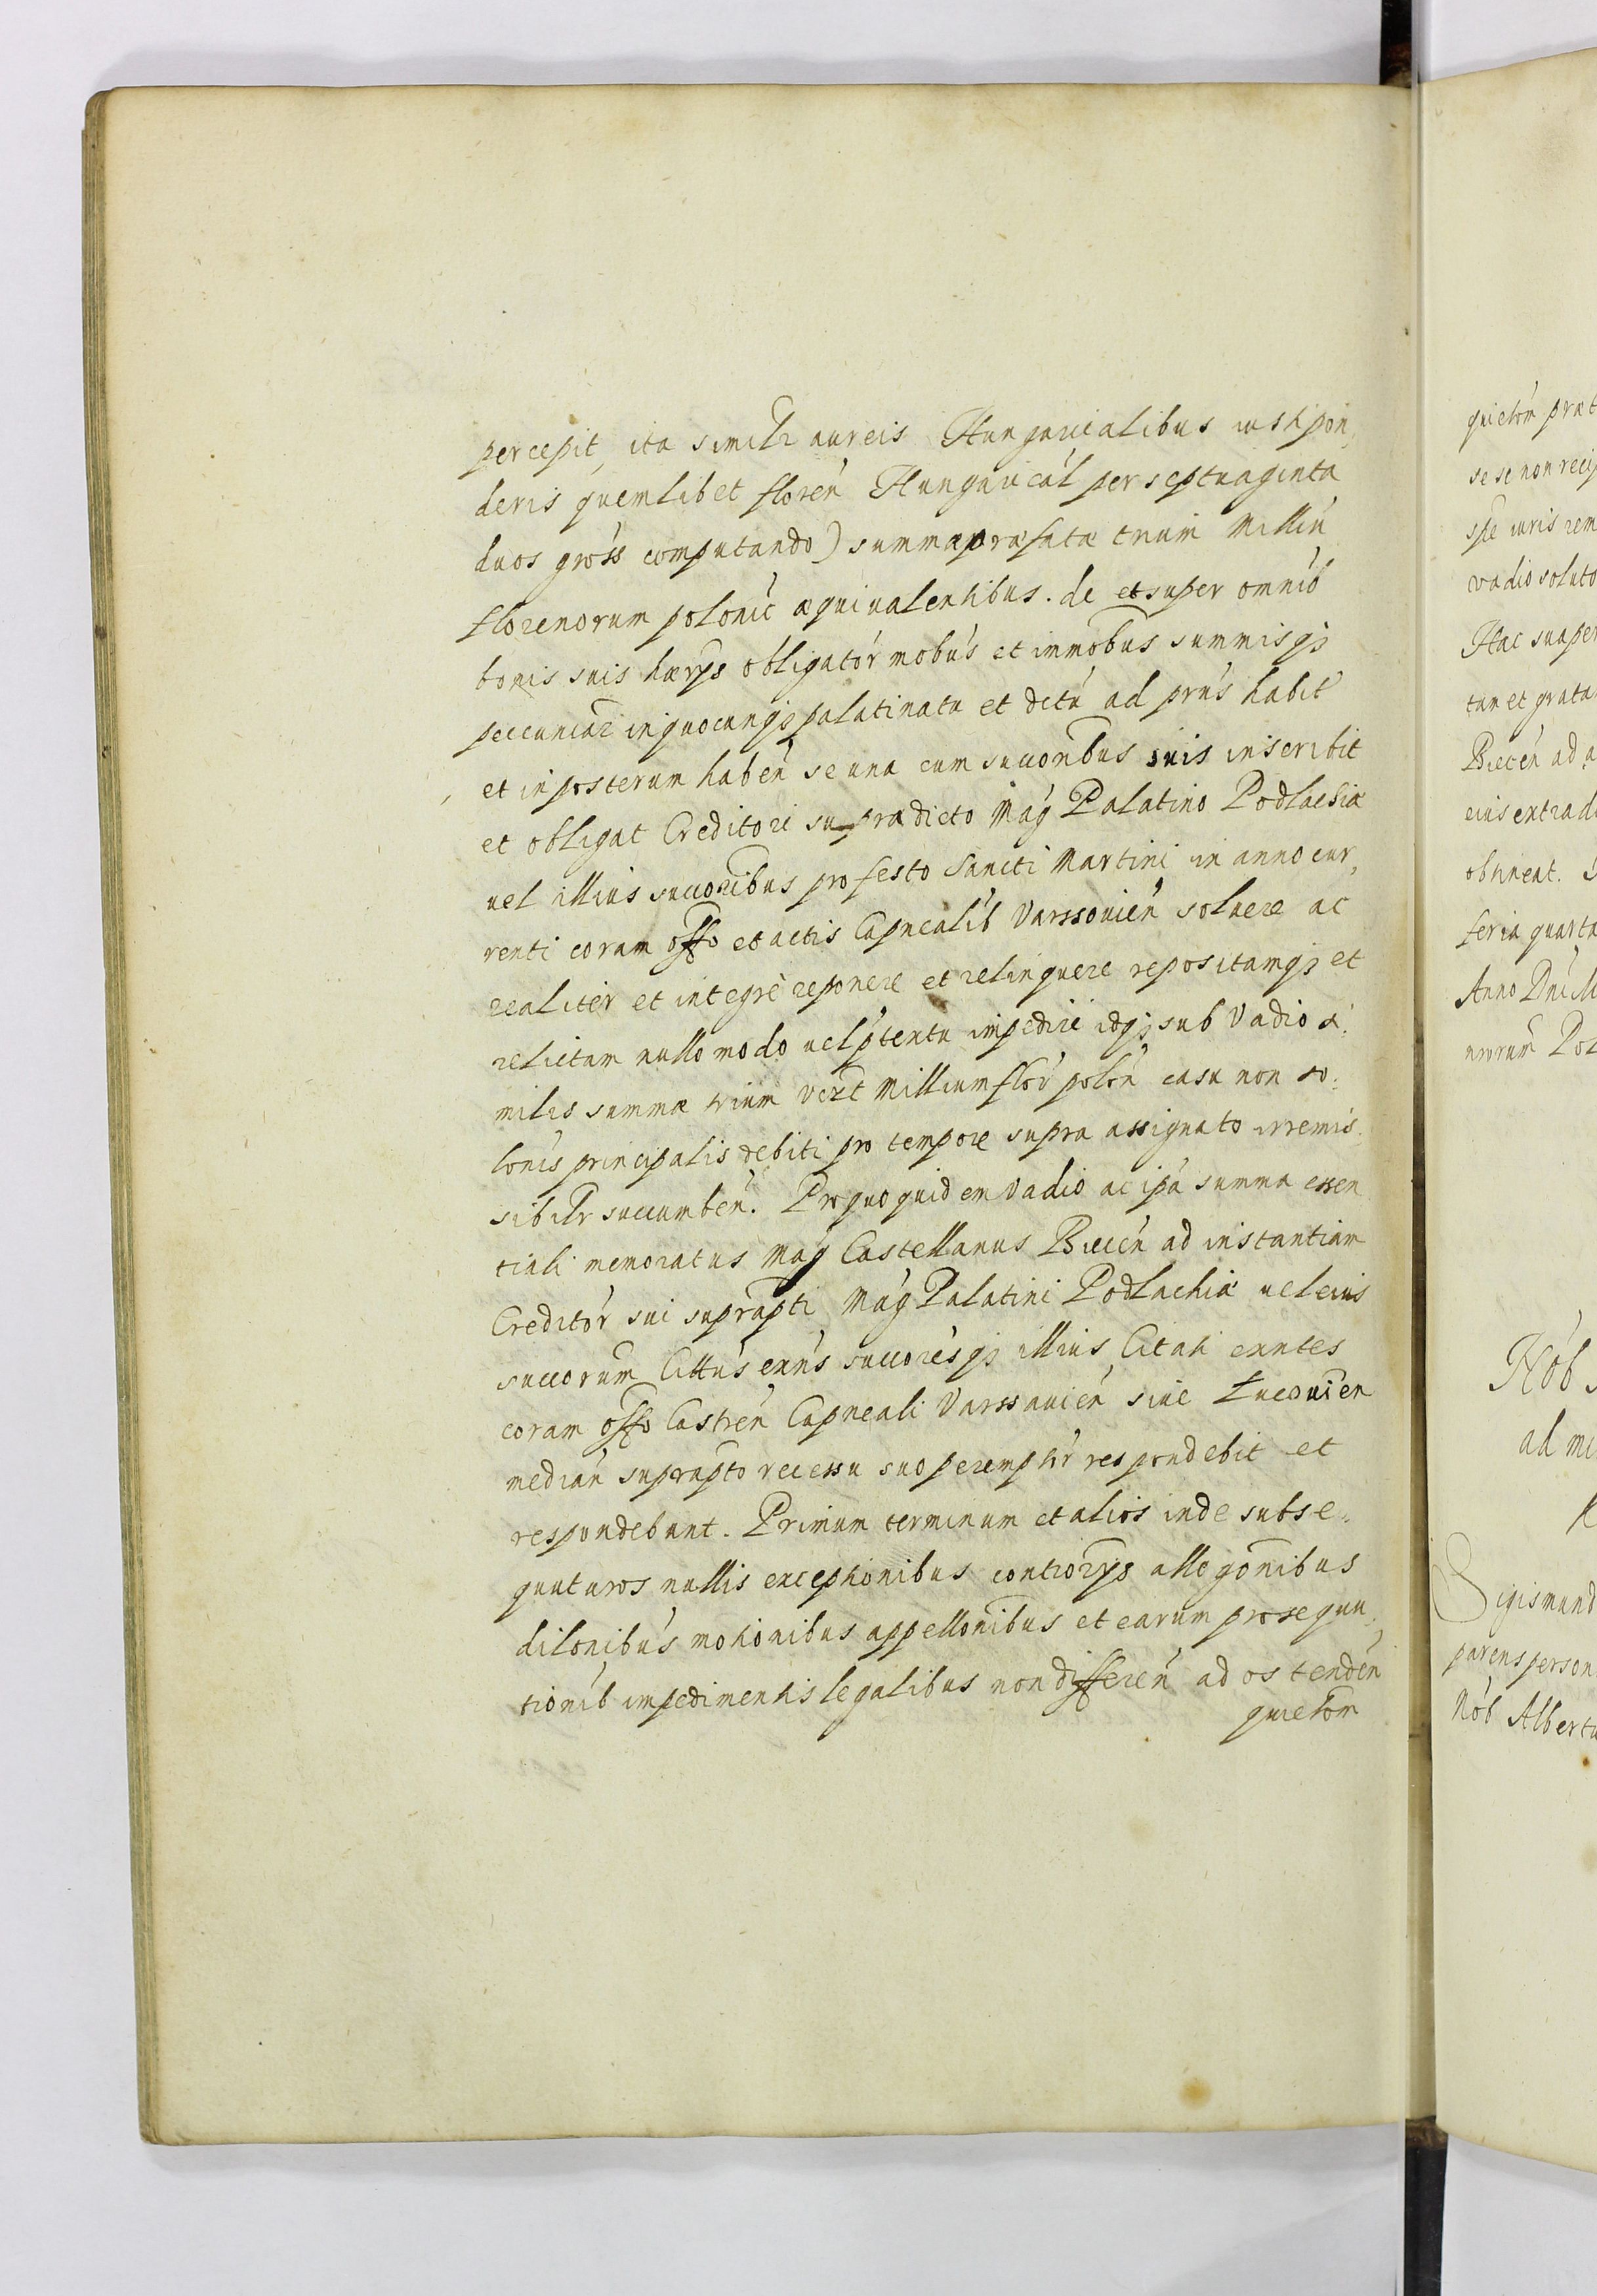 percepit, ita simili aureis Hungaricalibus iusti pon,
deris quemlibet floren Hungarical per septuaginta
duos gross computando) summæ præfatæ trium Milliu
florenorum polonic æquiualentibus. de et super omnib
bonis suis hærÿs obligator mobus et immobus summisqȝ
peccuniar in quocunqȝ palatinatu et dctu ad prns habit
et in posterum haben se una cum succoribus suis inscribit
et obligat Creditori supradicto Mag Palatino Podlachiæ
uel illius succoribus pro festo Sancti Martini in anno cur,
renti coram offo et actis Capnealib Varssouien soluere ac
realiter et integrè reponere et relinquere repositamqȝ et
relictam nullo modo uel ptentu impedire idqȝ sub Vadio si:
milis summæ trium Vert Millium flor polon casu non so:
lonis principalis debiti pro tempore supra assignato irremis:
sibilr succumben. Pro quo quidem Vadio ac ipa summa essen
tiali memoratus Mag Castellanus Biecen ad instantiam
Creditor sui suprapti Mag Palatini Podlachiæ uel eius
succorum Cittus exns succoresqȝ illius Citati exntes
coram offo Castren Capneali Varssauien siue Lucouien
median suprapto recessu suo peremptr respondebit et
respondebunt. Primum terminum et alios inde subse,
quuturos nullis exceptionibus controrÿs allegonibus
dilonibus motionibus appellonibus et earum prosequu,
tionib impedimentis legalibus non differen ad ostenden
quietom
quietom præt
se se non recip
spe iuris rem
vadio soluto
Hac sua per
tan et grata
Biecen ad
eius extrad
obtineat.
feria quarta
Anno Dni M
norum Pol
Nob
ad m
Sigismund
parens person
Nob Albertu